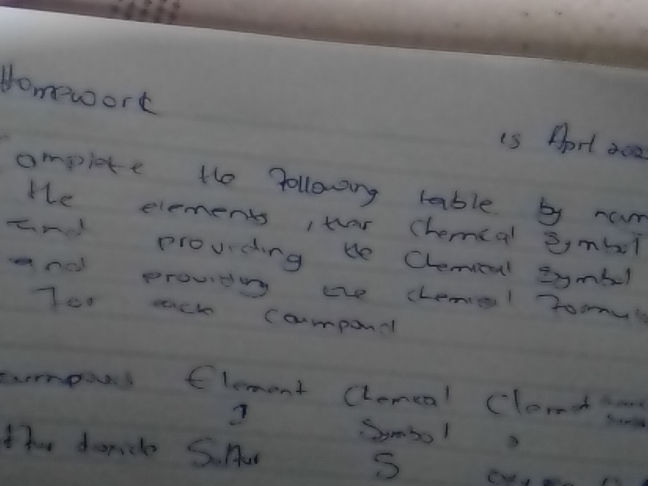 Homework
15 April 202
omplete the following table by nam
the elements, thar Chemical Symbol
and providing the Chemical Symbol
and providing the chemical Formula
For each compound
Element Chemical Element
1 Symbol 2
Sulfur S